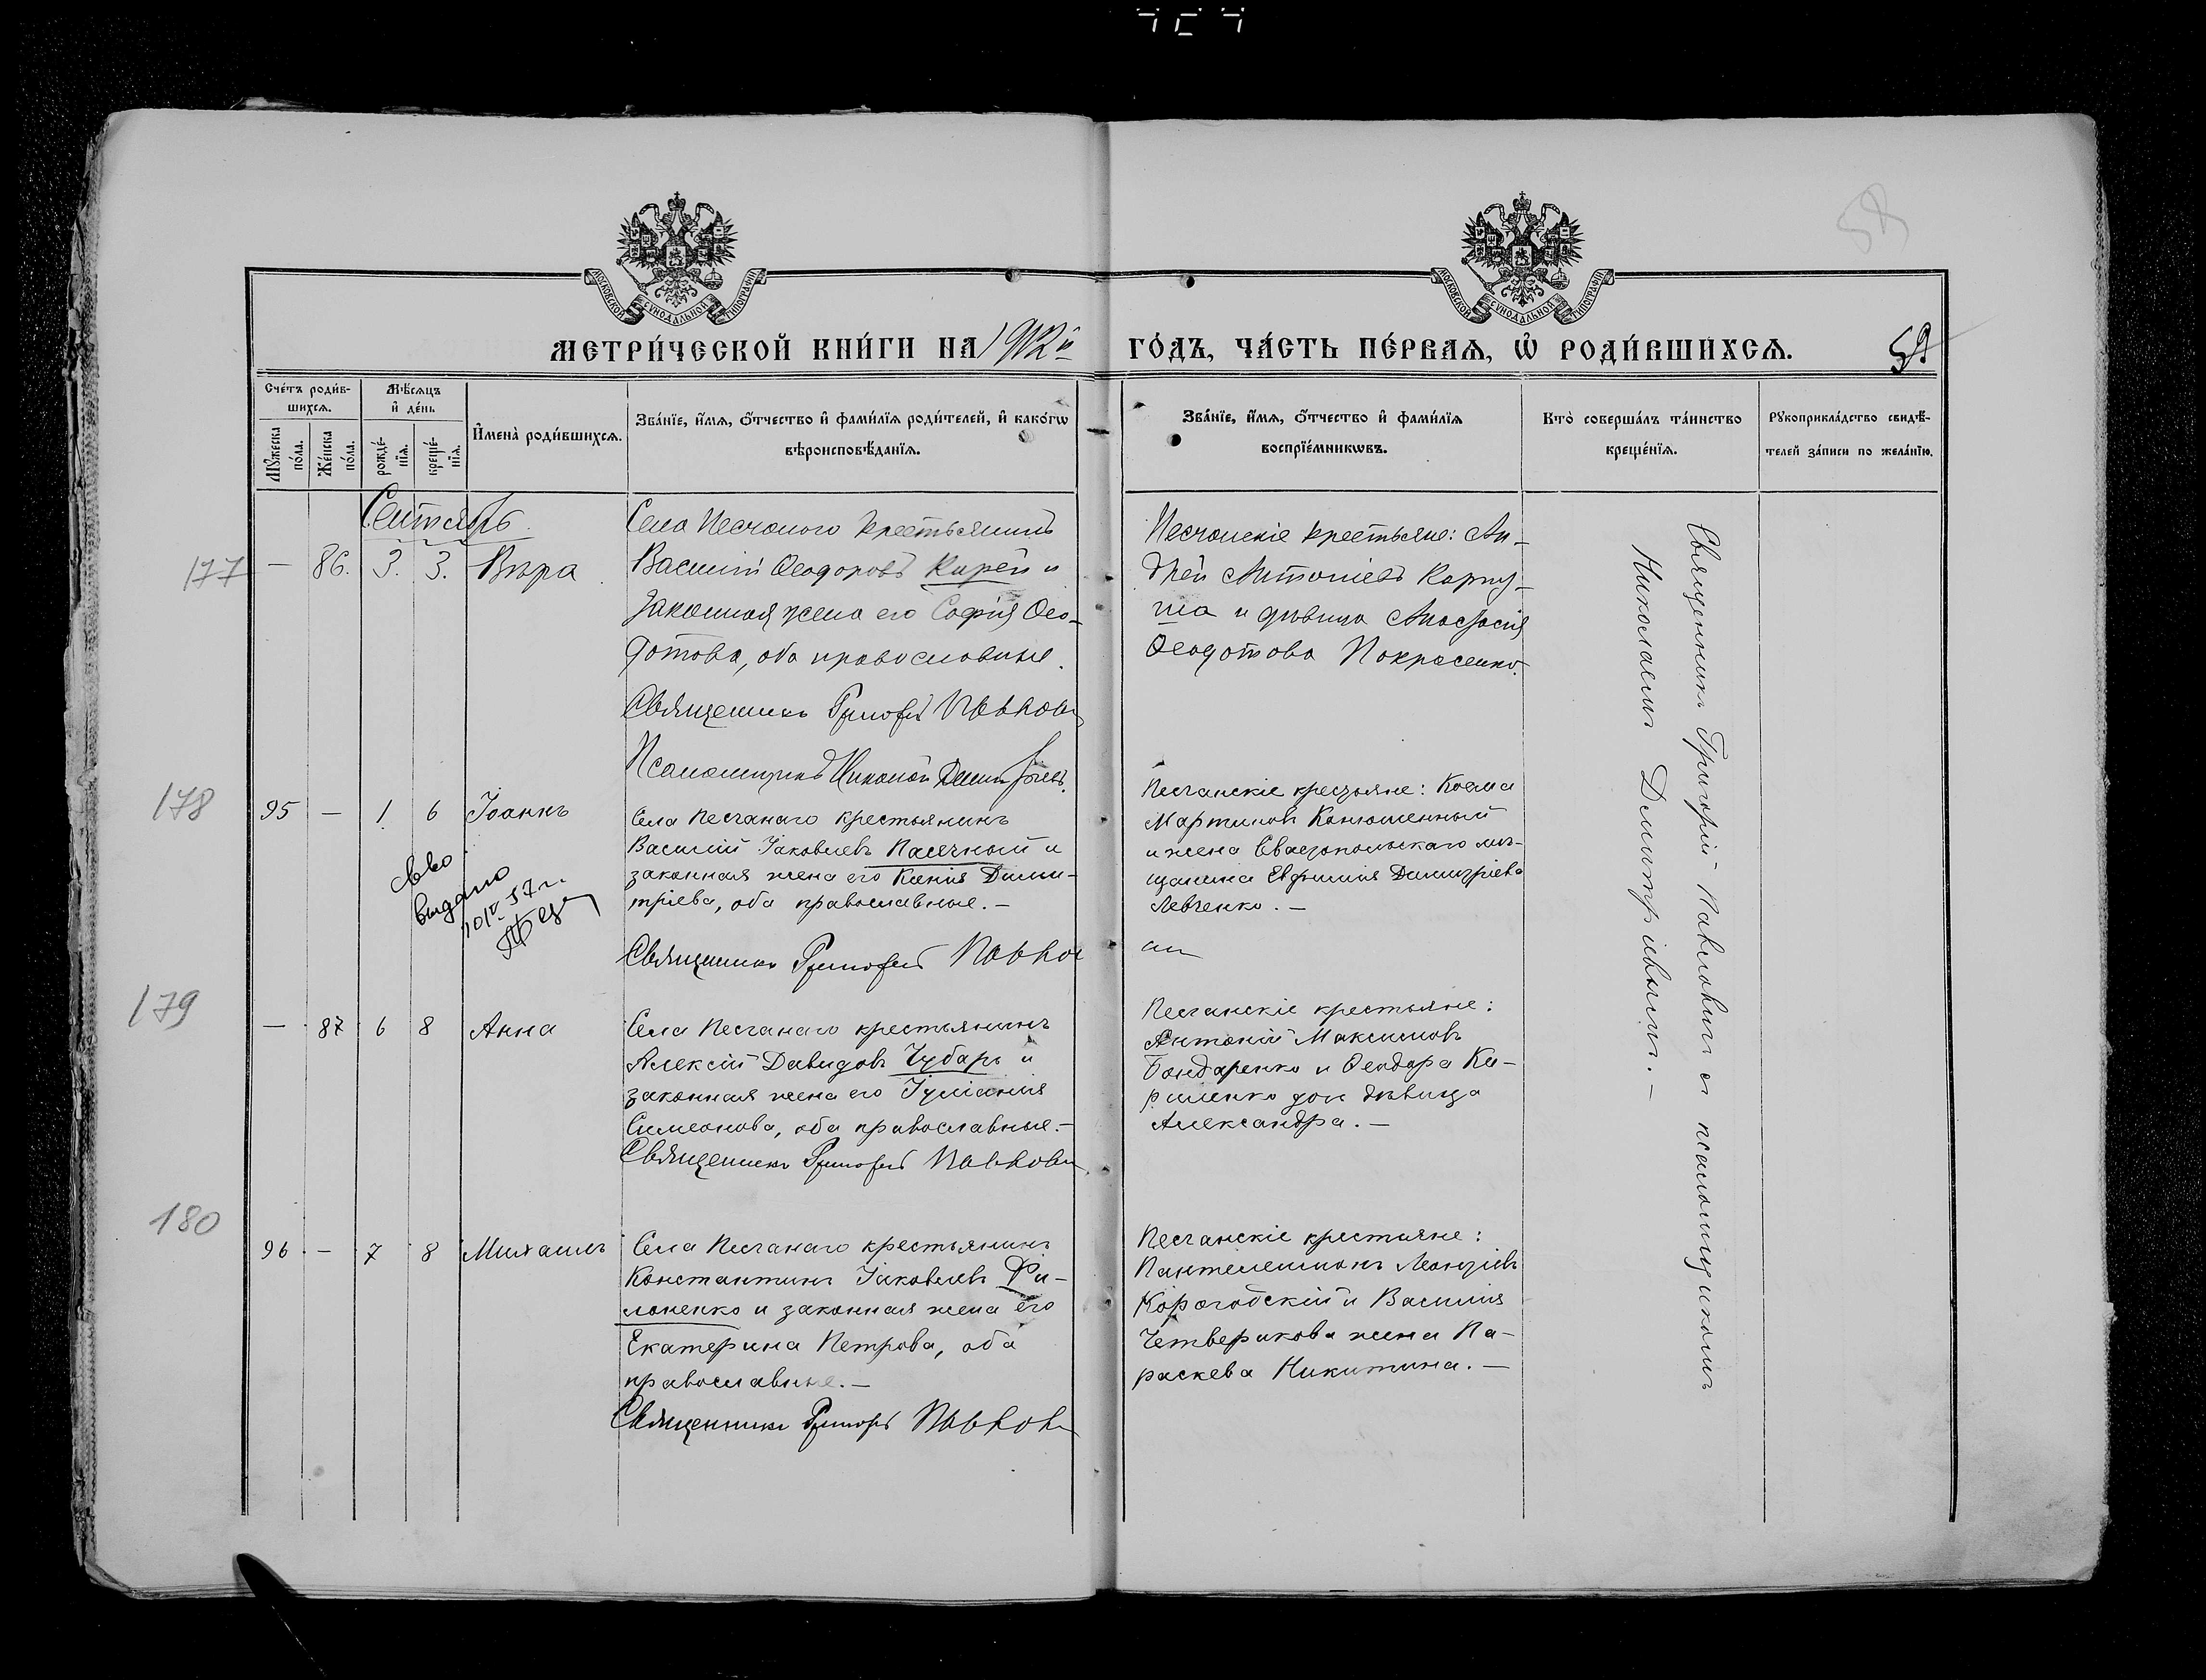 58
МОСКОВСКОЙ СѴНОДАЛЬНОЙ ТИПОГРАФІИ
МОСКОВСКОЙ СѴНОДАЛЬНОЙ ТИПОГРАФІИ
МЕТРИ́ЧЕСКОЙ КНИ́ГИ НА 1912й ГО́ДЪ, ЧА́СТЬ ПЕ́РВАѦ, Ѡ҆ РОДИ́ВШИХСѦ.
59
Сче́тъ роди́в-
шихсѧ.
Мꙋ́жеска
по́ла.
Же́нска
по́ла.
Мѣ́сѧцъ
и҆ де́нь
рожде́-
нїѧ.
креще́-
нїѧ.
И҆мена̀ роди́вшихсѧ.
Зва́нїе, и҆́мѧ, ѻ҆́тчество и҆ фами́лїѧ роди́телей, и҆ како́гѡ
вѣроисповѣ́данїѧ.
Зва́нїе, и҆́мѧ, ѻ҆́тчество и҆ фами́лїѧ
воспрїе́мникѡвъ.
Кто̀ соверша́лъ та́инство
креще́нїѧ.
Рꙋкоприкла́дство свидѣ́-
телей за́писи по жела́нїю.
Сентябрь
177
— 86. 3. 3. Вѣра
Села Песчаного крестьянинъ
Василій Ѳеодоровъ Кирей и
законная жена его Софія Ѳео-
дотова, оба православные.
Священникъ Григорій Павлович
Псаломщикъ Николай Димитріевъ
Песчанскіе крестьяне: Ан-
дрей Антоніевъ Карпу-
ша и дѣвица Анастасія
Ѳеодотова Покрасенко.
178
95 — 1 6 Іоаннъ
Села Песчанаго крестьянинъ
Василій Іаковлевъ Пасечный и
законная жена его Ксенія Дими-
тріева, оба православные. —
Священникъ Григорій Павлов
Песчанскіе крестьяне: Косма
Мартиновъ Конюшенный
и жена Евстропольскаго мѣ-
щанина Евфимія Димитріева
Левченко. —
выдано
179
— 87 6 8 Анна
Села Песчанаго крестьянинъ
Алексій Давидовъ Чубарь и
законная жена его Іуліанія
Симеонова, оба православные. —
Священникъ Григорій Павлович
Песчанскіе крестьяне:
Антоній Максимовъ
Бондаренко и Ѳеодора Ки-
риленко дочь дѣвица
Александра. —
180
96 — 7 8 Михаилъ
Села Песчанаго крестьянинъ
Константинъ Іаковлевъ Фи-
лоненко и законная жена его
Екатерина Петрова, оба
православные. —
Священникъ Григорій Павлов
Песчанскіе крестьяне:
Пантелеимонъ Леонтіевъ
Корогодскій и Василія
Четверикова жена Па-
раскева Никитина. —
Священникъ Григорій Павловичъ съ псаломщикомъ
Николаемъ Димитріевымъ. —